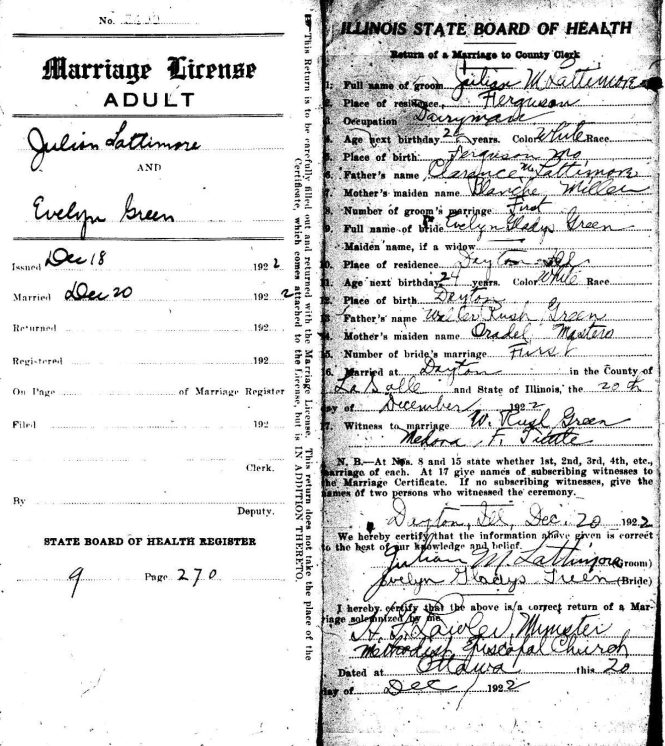 No.
Marriage License
ADULT
Julian Lattimore
AND
Evelyn Green
Issued Dec 18 1922
Married Dec 20 1922
Returned 192
Registered 192
On Page of Marriage Register
Filed 192
Clerk.
By
Deputy.
STATE BOARD OF HEALTH REGISTER
9 Page 270
This Return is to be carefully filled out and returned with the Marriage License. This return does not take the place of the
Certificate, which comes attached to the License, but is IN ADDITION THERETO.
ILLINOIS STATE BOARD OF HEALTH
Return of a Marriage to County Clerk
1. Full name of groom Julian M Lattimore
2. Place of residence, Ferguson
3. Occupation Dairyman
4. Age next birthday 26 years. Color White Race
5. Place of birth Ferguson Mo.
6. Father's name Clarance M Lattimore
7. Mother's maiden name Blanche Miller
8. Number of groom's marriage First
9. Full name of bride Evelyn Gladys Green
Maiden name, if a widow
10. Place of residence Dayton Ill
11. Age next birthday 24 years. Color White Race
12. Place of birth Dayton
13. Father's name Walter Rush Green
14. Mother's maiden name Oradel Masters
15. Number of bride's marriage First
16. Married at Dayton in the County of
La Salle and State of Illinois, the 20th
day of December 1922
17. Witness to marriage W. Rush Green
Medora F. Tuttle
N. B.—At Nos. 8 and 15 state whether 1st, 2nd, 3rd, 4th, etc.,
marriage of each. At 17 give names of subscribing witnesses to
the Marriage Certificate. If no subscribing witnesses, give the
names of two persons who witnessed the ceremony.
Dayton, Ill, Dec. 20 1922
We hereby certify that the information above given is correct
to the best of our knowledge and belief.
Julian M. Lattimore (Groom)
Evelyn Gladys Green (Bride)
I hereby certify that the above is a correct return of a Mar-
riage solemnized by me
Lawler, Minister
Methodist Episcopal Church
Dated at Ottawa this 20
day of Dec 1922